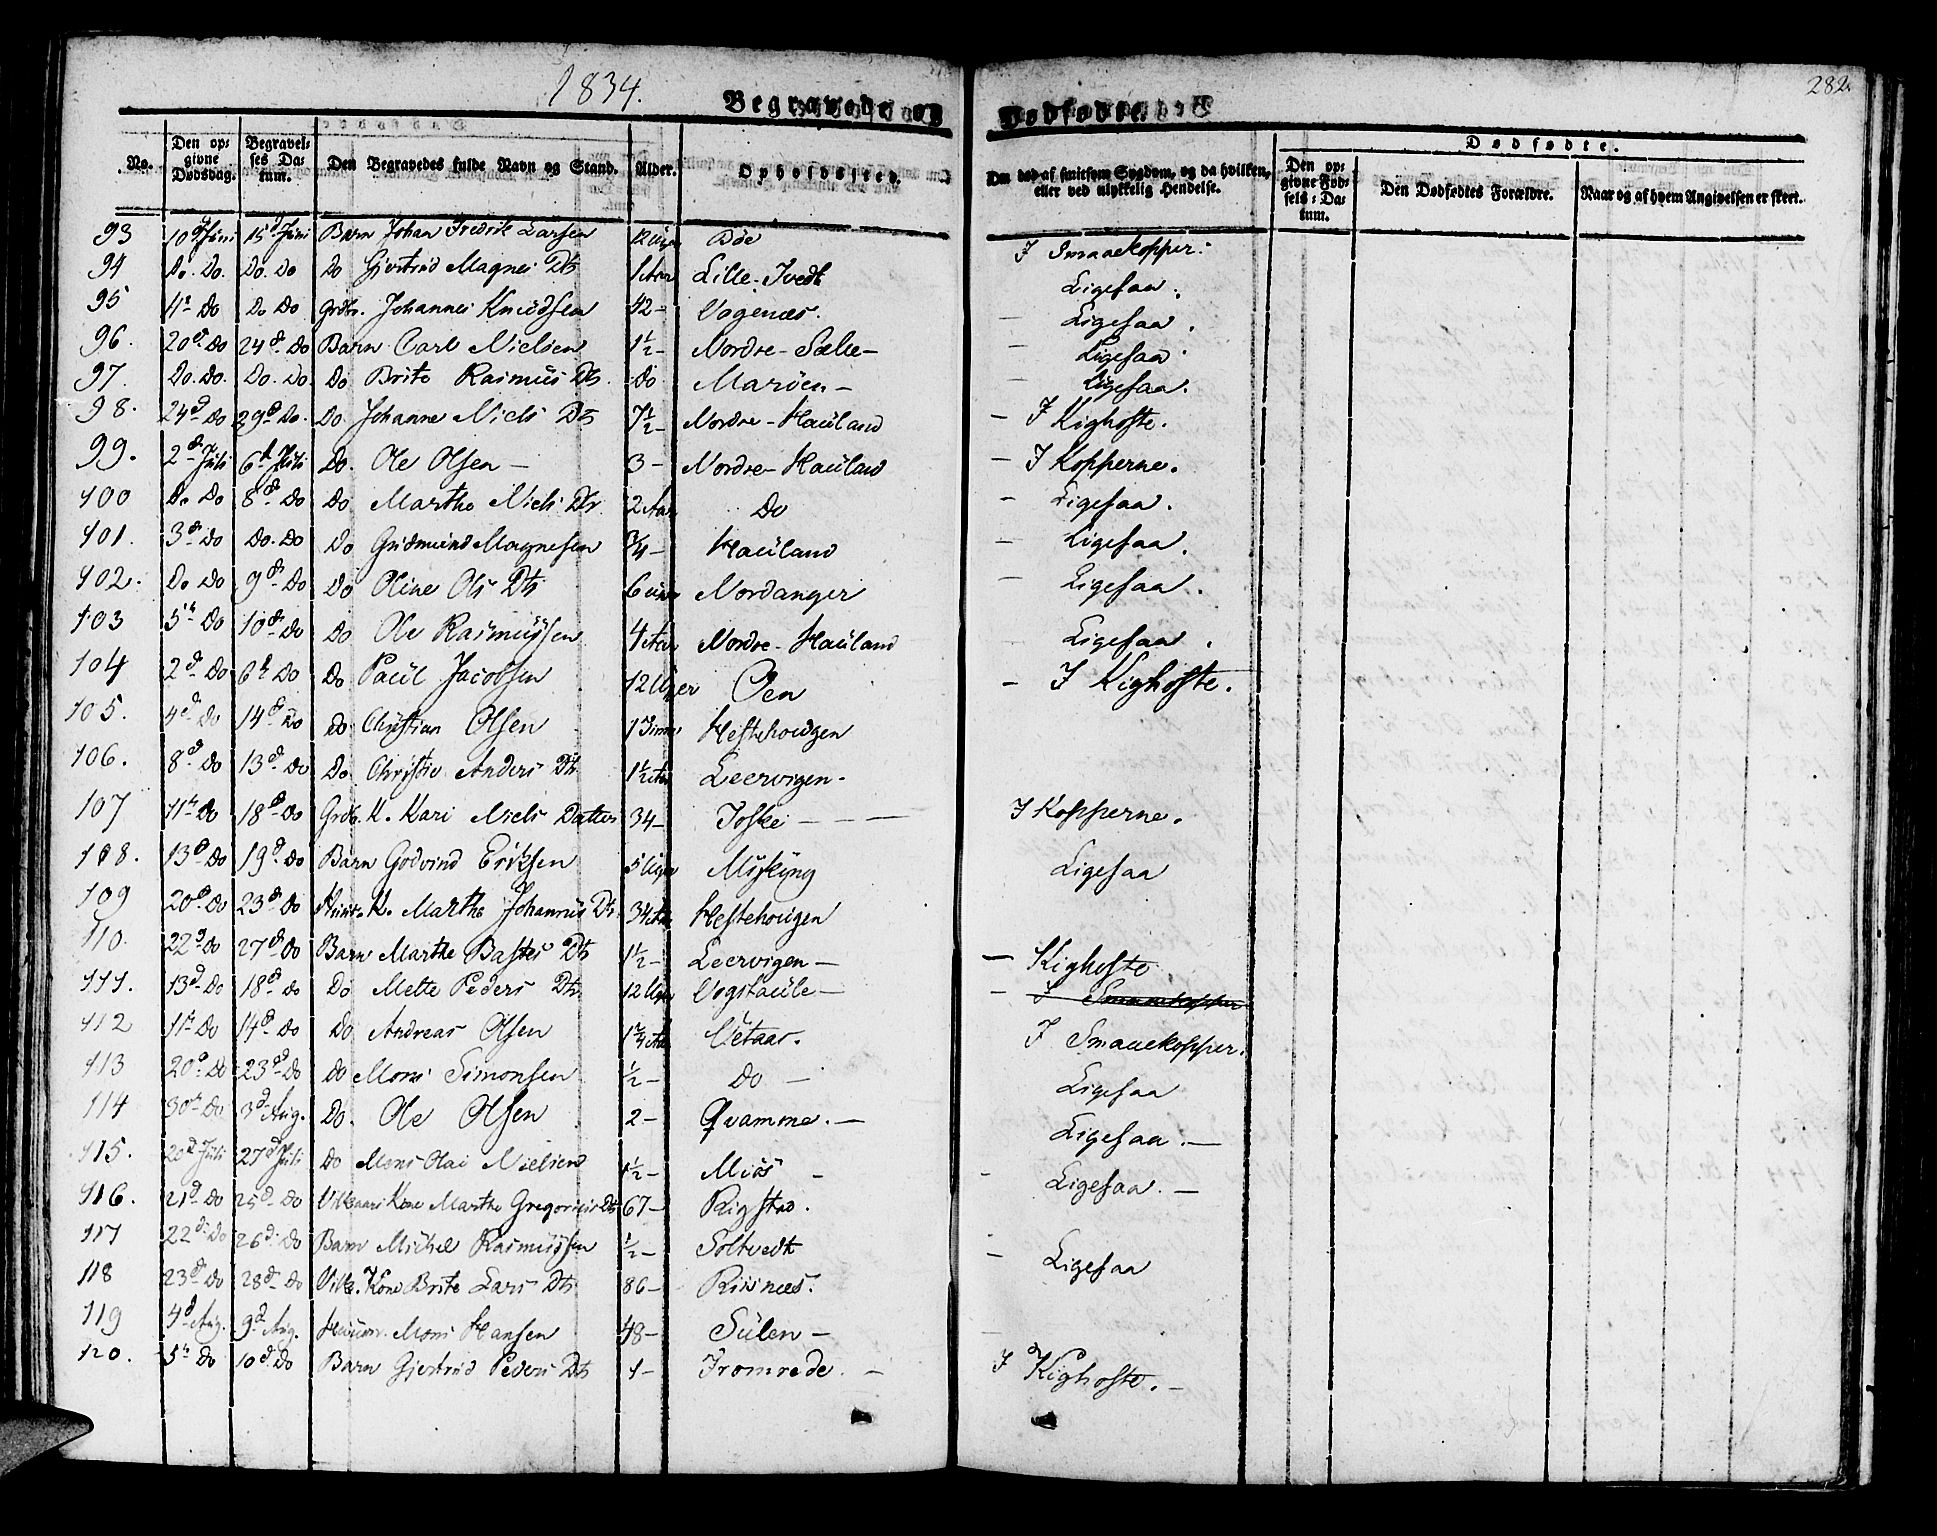 1834.
282.
Begravede og Dødfødte.
Dødfødte.
No. Den opgivne Dødsdag. Begravelses Datum. Den Begravedes fulde Navn og Stand. Alder. Opholdssted. Om død af smitsom Sygdom, og da hvilken, eller ved ulykkelig Hendelse. Den opgivne Fødsels-Datum. Den Dødfødtes Forældre. Naar og af hvem Angivelsen er skeet.
93 10d Juni 15d Juni Barn Johan Fredrik Larsen 12 Uger Bøe I Smaaekopper.
94 Do. Do. Do. Do Do Gjertrud Magnes Dtr 1 Aar Lille-Tvedt Ligesaa.
95 11t Do Do Do Grdbr. Johannes Knudsen 42 - Vagenæs. - Ligesaa.
96. 20d Do 24d Do Barn Carl Nielsen 1½ - Nordre-Sælie - - Ligesaa.
97. Do. Do. Do. Do. Do Brite Rasmus Dtr. Do Marøen - - Ligesaa.
98. 24d Do 29d Do. Do. Johanne Niels Dtr 7½ - Nordre-Hauland - I Kighoste.
99. 2d Juli 6t Juli Do. Ole Olsen - 3 - Nordre-Hauland - I Kopperne.
100 Do Do 8d Do Do Marthe Niels Dtr 2 Aar Do - Ligesaa.
101. 3d Do Do. Do Do Gudmund Magnesen ¾ - Hauland - Ligesaa.
102. Do Do 9d Do Do Oline Ols Dtr 6 Nordanger - Ligesaa.
103 5t Do 10d Do Do Ole Rasmussen 4 Aar Nordre-Hauland Ligesaa.
104 2d Do 6t Do Do Paul Jacobsen 12 Uger Øen - I Kighoste.
105. 4d Do 14d Do Do Christian Olsen 1 Heftehougen
106. 8d Do 13d Do Do. Christie Anders Dtr 1½ Aar Leervigen -
107 11t Do 18d Do Grdb. K. Kari Niels Datter 34 - Toske - - - I Kopperne.
108. 13d Do 19d Do Barn Godvind Eriksen 5 Uger Myking Ligesaa
109 20d Do 23d Do K. Marthe Johannes Dtr. 34 Aar Heftehougen
110. 22d Do 27d Do Barn Marthe Bastes Dtr 1½ - Leervigen - - Kighoste.
111. 13d Do 18d Do Do Mette Peders Dtr 12 Uger Vogstaule - - I Smaaekopper
112 11t Do 14d Do Do Andreas Olsen 1¼ Aar Uetaar. I Smaaekopper.
113 20d Do 23d Do Do Mons Simonsen ½ - Do - Ligesaa
114 30t Do 3d Aug. Do. Ole Olsen 2 - Qvamme. - Ligesaa. -
115. 20d Juli 27d Juli Do Mons Olai Nielsen 1½ - Miøs - - Ligesaa. -
116. 21d Do 25d Do Kone Marthe Gregorius Dtr 67 - Rigstad.
117 22d Do 26d Do Barn Michel Rasmussen ½ - Soltvedt - Ligesaa
118 23d Do 28d Do Kone Brite Lars Dtr 86 - Risnæs.
119 4d Aug. 9d Aug. Mons Hansen 48 - Sulen -
120. 5t Do 10d Do Barn Gjertrud Peders Dtr 1 - Fromrede. - I Kighoste. -